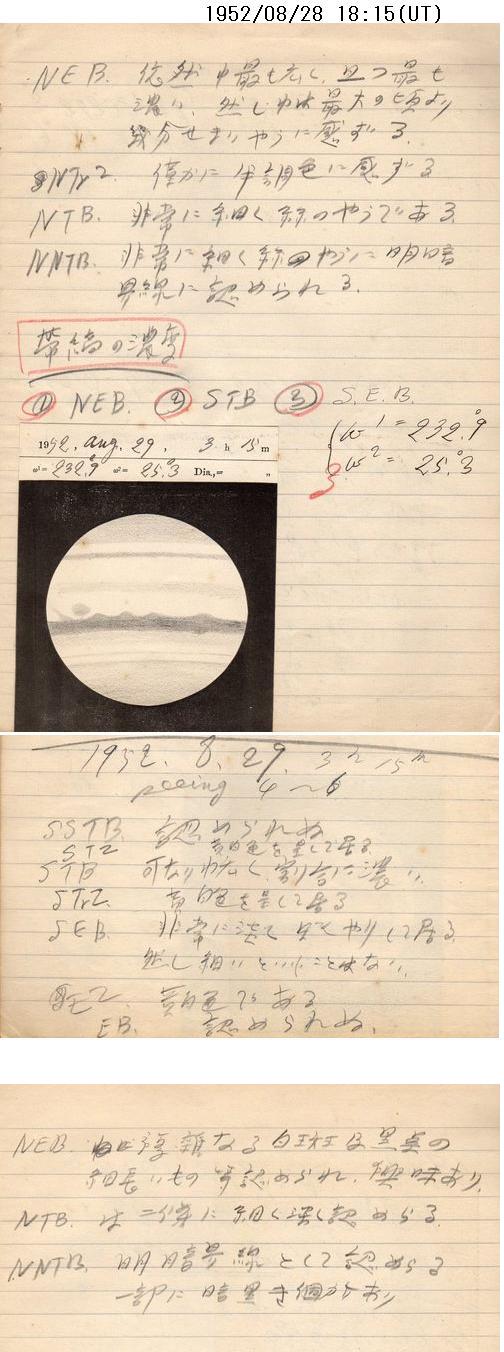 1952/08/28 18:15(UT)
NEB. 依然 巾最も広く、且つ最も
濃い、然し巾は最大の頃より
幾分せまいやうに感ずる
NTrZ. 僅かに 色に感ずる
NTB. 非常に細く糸のやうである
NNTB. 非常に細く糸のやうに明暗
界線に認められる.
帯縞の濃度
① NEB. ② STB ③ S.E.B.
ω1 = 232°.9
ω2 = 25°.3
1952. Aug. 29. 3 h 15 m
ω1= 232°.9 ω2= 25°.3 Dia,= "
1952. 8. 29. 3h 15m
seeing 4〜6
SSTB. 認められぬ
STZ 色を呈して居る
STB 可なり巾広く、割合に濃い.
STrZ. 色を呈して居る
SEB. 非常に淡くぼんやりして居る
然し細いといふことはない.
EZ. 色である
EB. 認められぬ.
NEB. 複雑なる白斑及黒点の
細長いもの等認められ、興味あり.
NTB. は 二條に細く淡く認めらる.
NNTB. 明暗界線として認めらる
一部に暗黒き個所あり